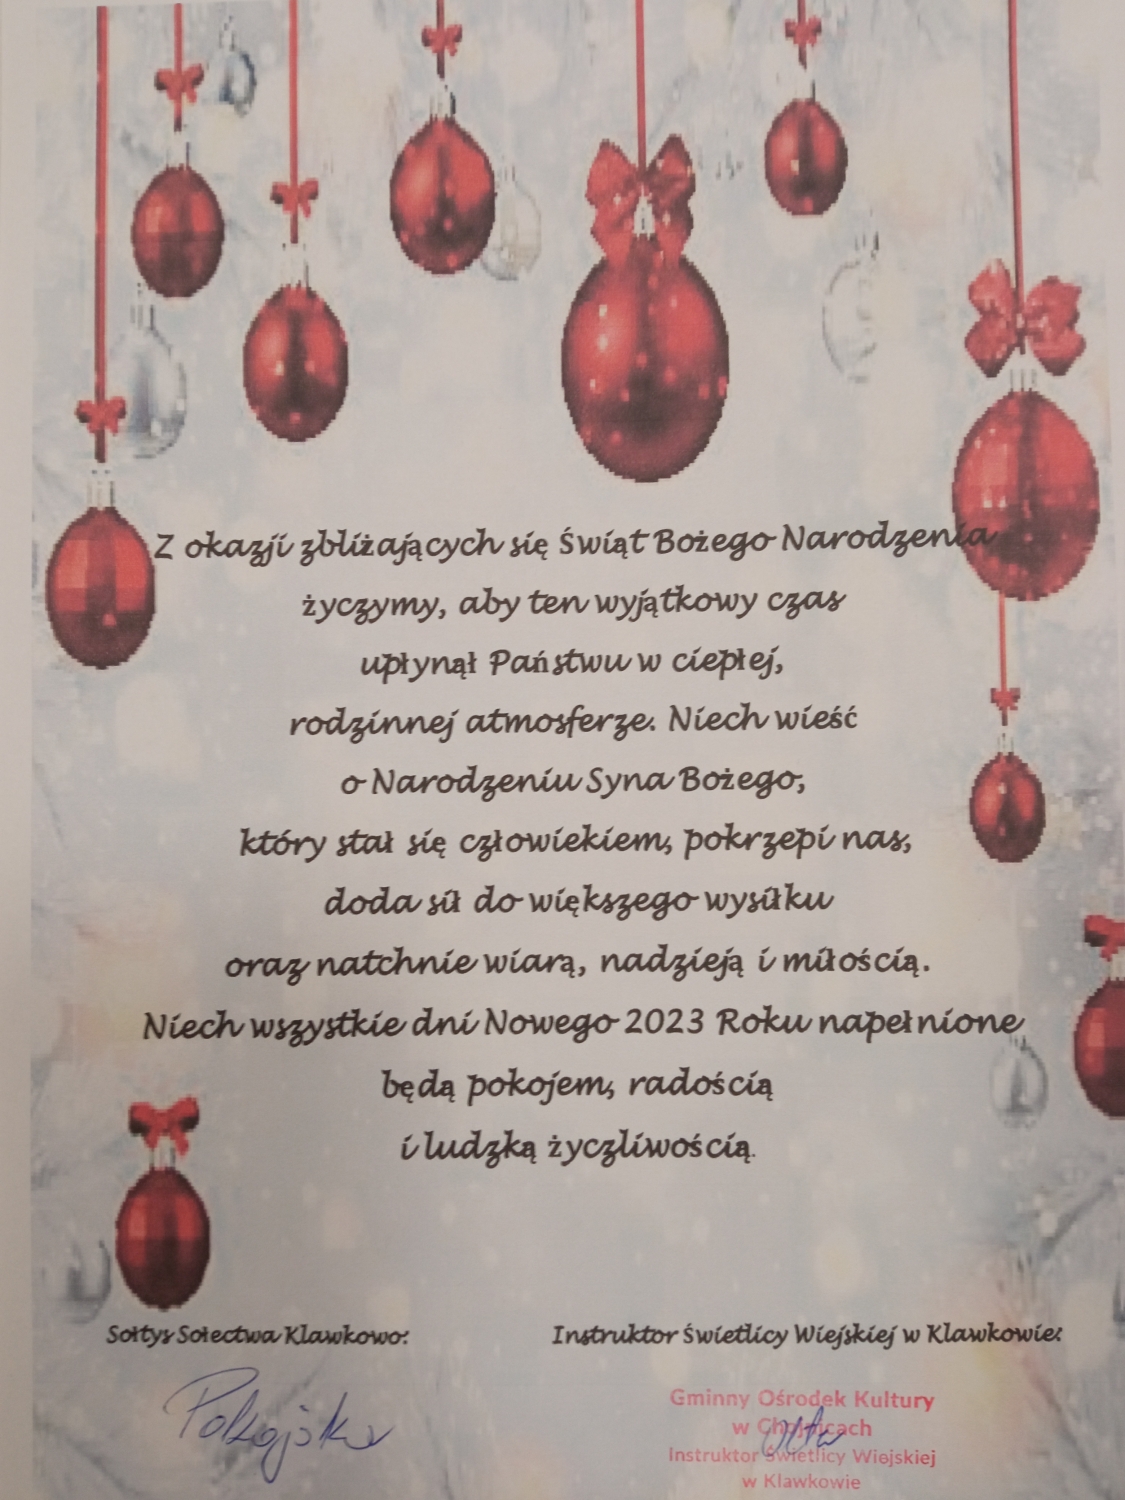 Z okazji zbliżających się Świąt Bożego Narodzenia
życzymy, aby ten wyjątkowy czas
upłynął Państwu w ciepłej,
rodzinnej atmosferze. Niech wieść
o Narodzeniu Syna Bożego,
który stał się człowiekiem, pokrzepi nas,
doda sił do większego wysiłku
oraz natchnie wiarą, nadzieją i miłością.
Niech wszystkie dni Nowego 2023 Roku napełnione
będą pokojem, radością
i ludzką życzliwością.
Sołtys Sołectwa Klawkowo:
Instruktor Świetlicy Wiejskiej w Klawkowie:
Gminny Ośrodek Kultury
w Chojnicach
Instruktor Świetlicy Wiejskiej
w Klawkowie